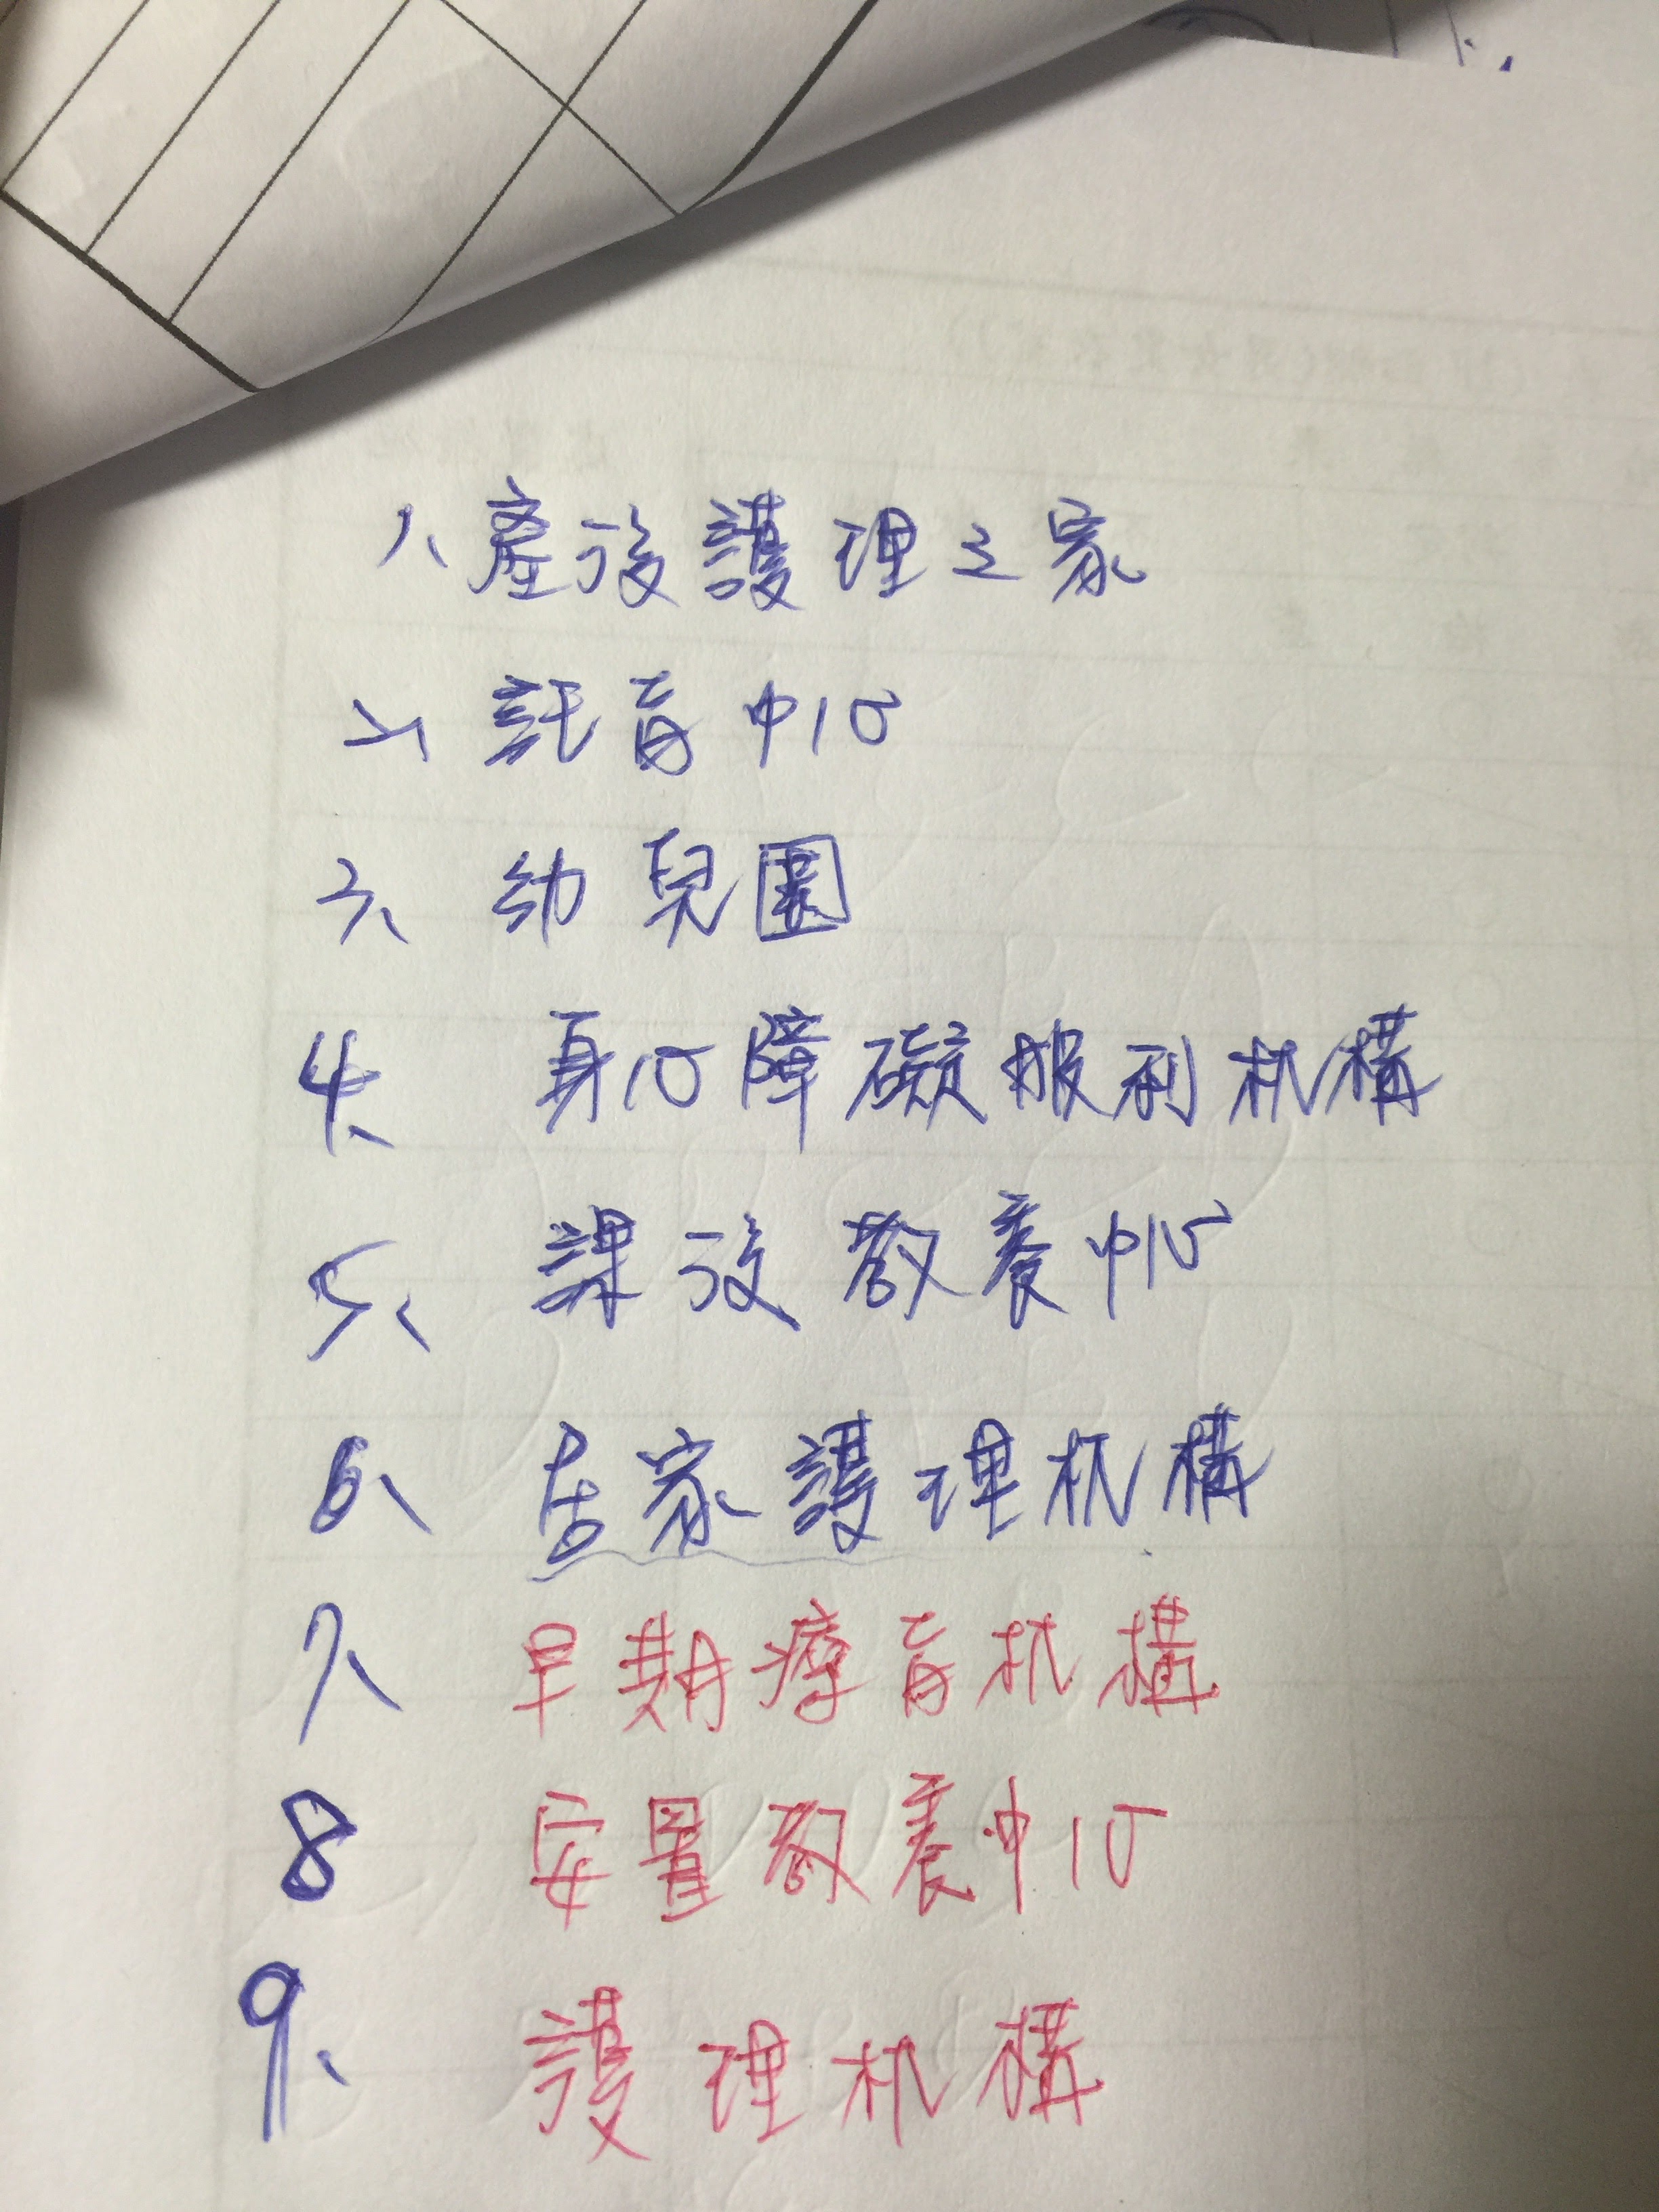 1、產後護理之家
2、託育中心
3、幼兒園
4、身心障礙服利机構
5、課後教養中心
6、居家護理机構
7、早期療育机構
8 安置教養中心
9、護理机構